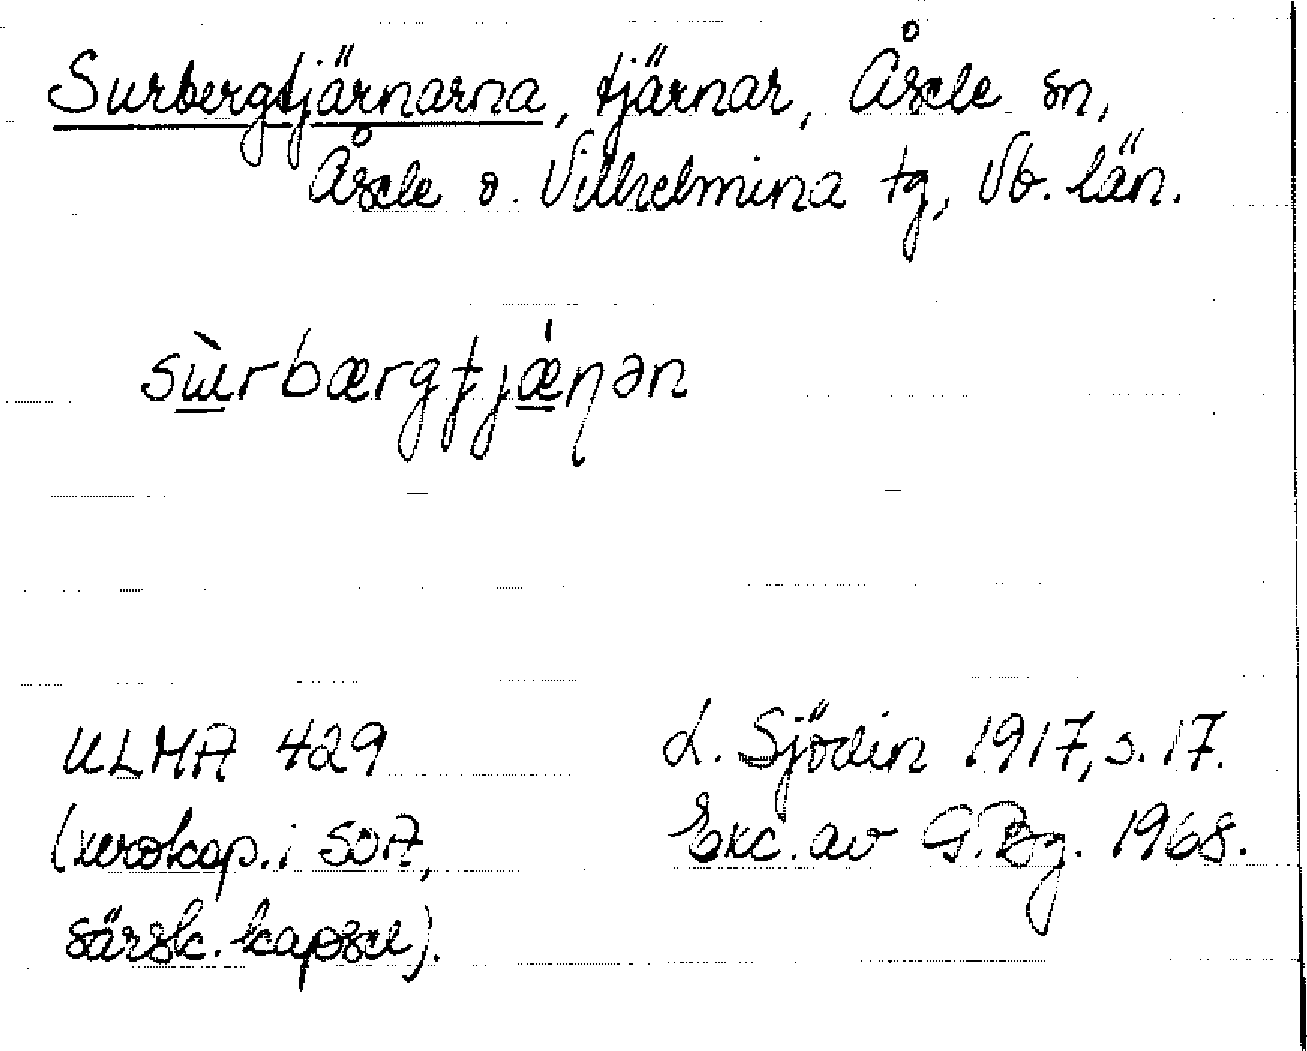 Surbergtjärnarna, tjärnar, Åsele sn,
Åsele o. Vilhelmina tg, Vb. län.
sɯ̀rbærgt̡jǽɳən
ULMA 429
(xerokop. i SOA,
särsk. kapsel).
L. Sjödin 1917, s. 17.
Exc. av G. Bg. 1968.